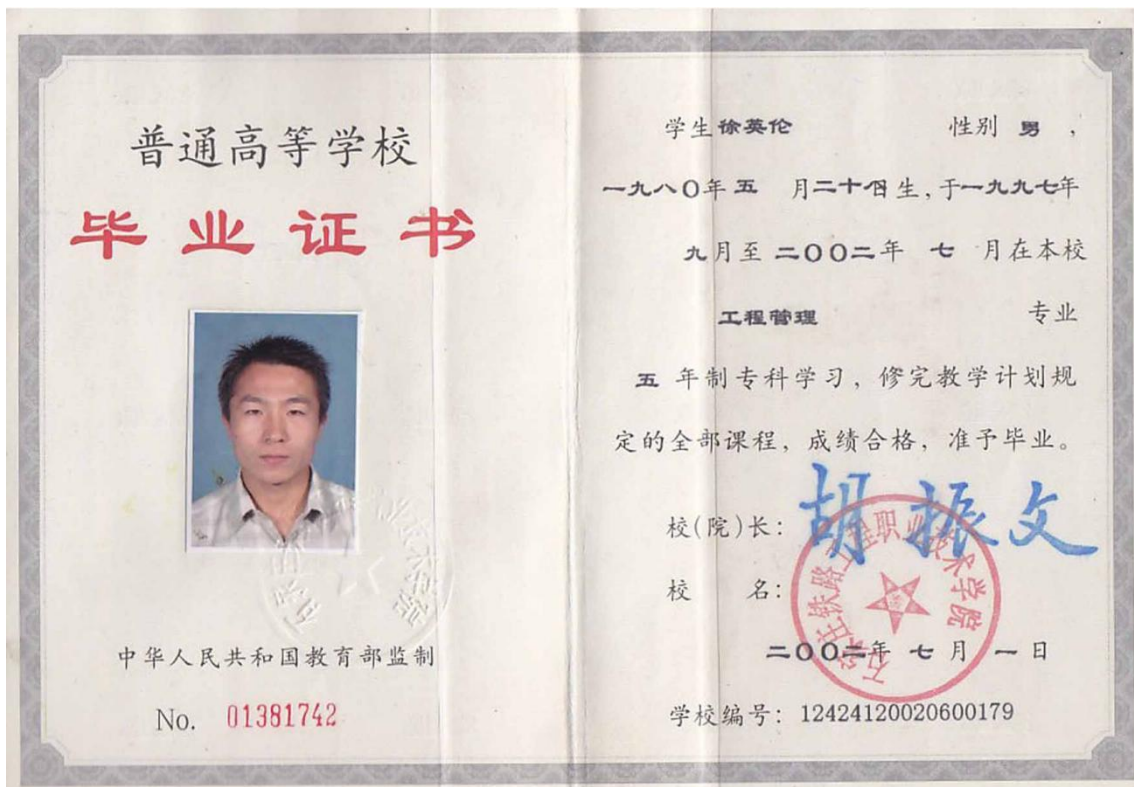 普通高等学校
毕业证书
中华人民共和国教育部监制
No. 01381742
学生徐英伦 性别 男 ,
一九八〇年五 月二十日生,于一九九七年
九月至二〇〇二年 七 月在本校
工程管理 专业
五 年制专科学习, 修完教学计划规
定的全部课程, 成绩合格, 准予毕业。
校(院)长: 胡振文
校 名:
石家庄铁路工程职业技术学院
二〇〇二年 七 月 一 日
学校编号: 12424120020600179